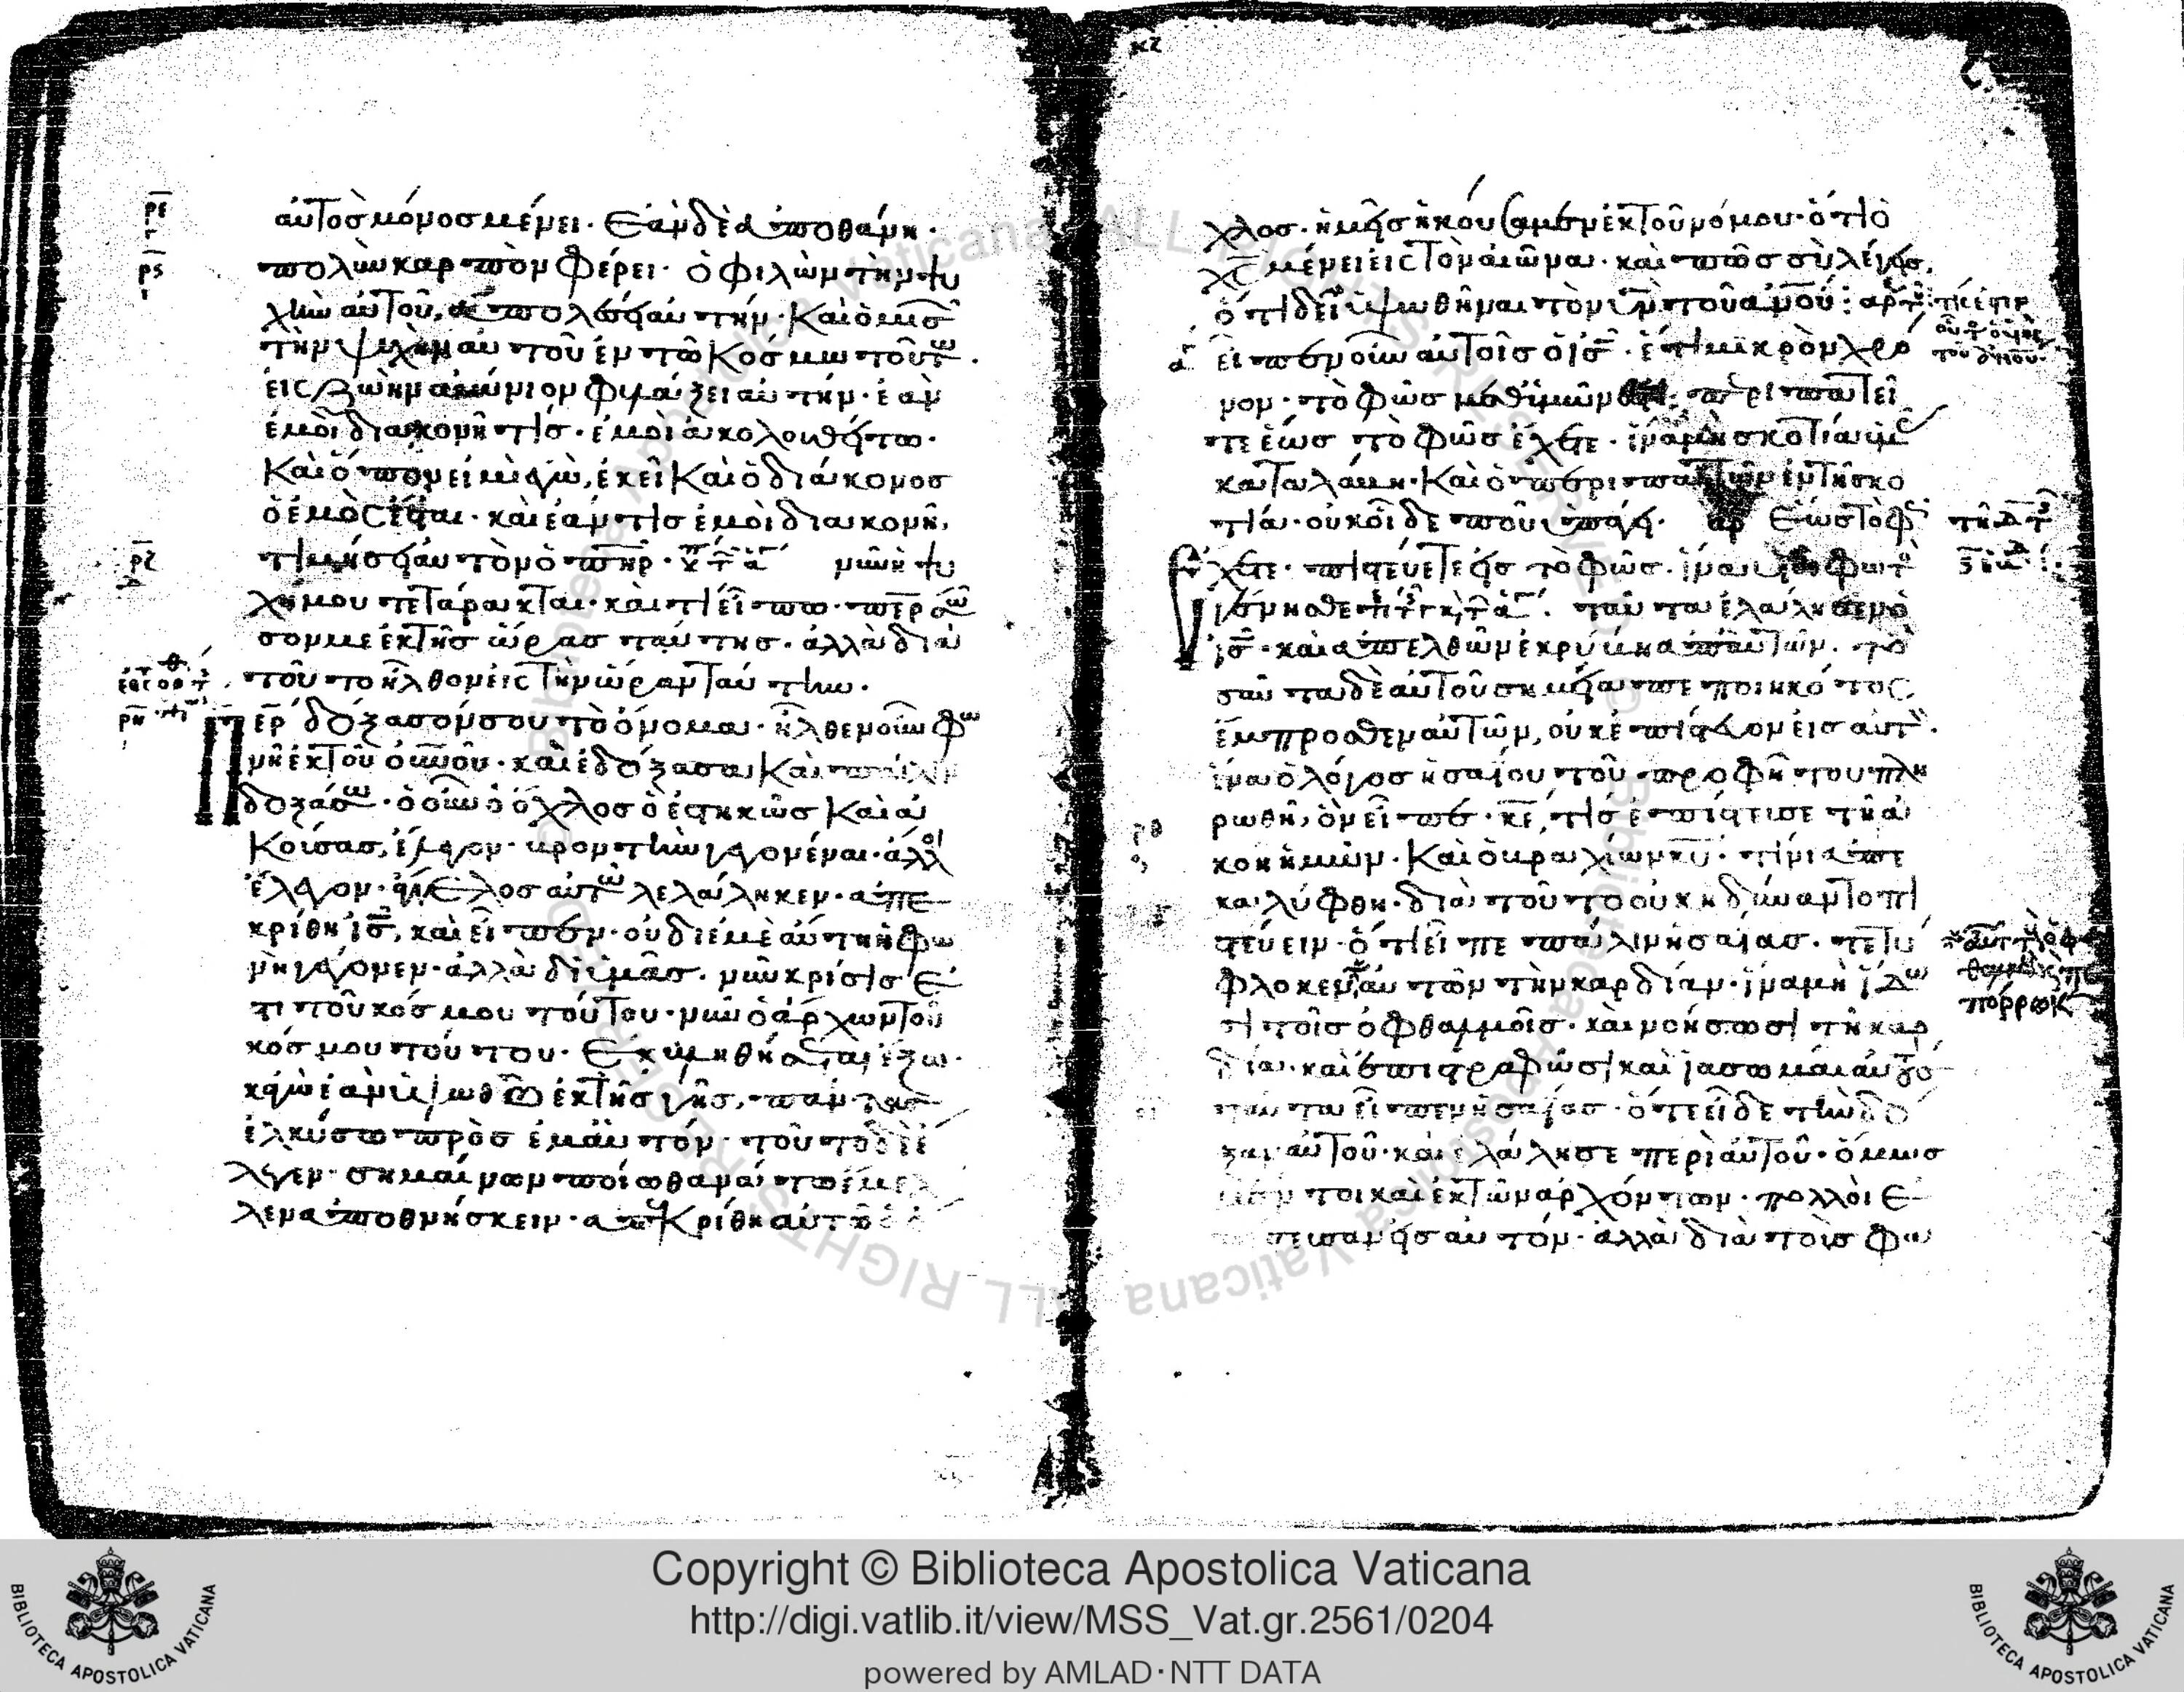 ρε
αὐτὸς μόνος μένει· ἐὰν δὲ ἀποθάνη·
ρς
πολὺν καρπὸν φέρει· ὁ φιλῶν τὴν ψυ
χὴν αὐτοῦ, ἀπολέσει αὐτήν· καὶ ὁ μισῶν
τὴν ψυχὴν αὐτοῦ ἐν τῶ κόσμω τούτω.
εἰς ζωὴν αἰώνιον φυλάξει αὐτήν· ἐὰν
ἐμοὶ διακονῆ τίς· ἐμοὶ ἀκολουθείτω·
καὶ ὅπου εἰμὶ ἐγὼ, ἐκεῖ καὶ ὁ διάκονος
ὁ ἐμὸς ἔσται· καὶ ἐάν τις ἐμοὶ διακονῆ,
ρζ
τιμήσει αὐτὸν ὁ πηρ· νῦν ἡ ψυ
χή μου τετάρακται· καὶ τί εἴπω· περ σῶ
σόν με ἐκ τῆς ὥρας ταύτης· ἀλλὰ διὰ
τοῦτο ἦλθον εἰς τὴν ὥραν ταύτην.
ρη
Περ δόξασόν σου τὸ ὄνομα· ἦλθεν οὖν φω
νὴ ἐκ τοῦ οὐνου· καὶ ἐδόξασα καὶ πάλιν
δοξάσω· ὁ οὖν ὁ ὄχλος ὁ ἑστηκὼς καὶ ἀ
κούσας, ἔλεγον· βροντὴν γεγονέναι· ἄλλοι
ἔλεγον· ἄγγελος αὐτῶ λελάληκεν· ἀπε
κρίθη ις, καὶ εἶπεν· οὐ δι ἐμὲ αὕτη ἡ φω
νὴ γέγονεν· ἀλλὰ δι ὑμᾶς· νῦν κρίσις ἐ
τι τοῦ κόσμου τούτου· νῦν ὁ ἄρχων τοῦ
κόσμου τούτου· ἐκβληθήσεται ἔξω·
κἀγὼ ἐὰν ὑψωθῶ ἐκ τῆς γῆς, πάντας
ἑλκύσω πρὸς ἐμαυτόν· τοῦτο δὲ ἔ
λεγεν· σημαίνων ποίω θανάτω ἔμελ
λεν ἀποθνήσκειν· ἀπεκρίθη αὐτῶ ὁ ὄ
κζ
χλος· ἡμεῖς ἠκούσαμεν ἐκ τοῦ νόμου· ὅτι ὁ
χς μένει εἰς τὸν αἰῶνα· καὶ πῶς σὺ λέγεις,
ὅτι δεῖ ὑψωθῆναι τὸν υν τοῦ ανου:
εἶπεν οὖν αὐτοῖς ὁ ις· ἔτι μικρὸν χρό
νον· τὸ φῶς μεθ ὑμῶν περιπατεῖ
τε ἕως τὸ φῶς ἔχετε· ἵνα μὴ σκοτία ὑμᾶς
καταλάβη· καὶ ὁ περιπατῶν ἐν τῆ σκο
τία· οὐκ οἶδε ποῦ ὑπάγει· αρ ἕως τὸ φῶς
ἔχετε· πιστεύετε εἰς τὸ φῶς· ἵνα υἱοὶ φωτὸς
γένησθε· ταῦτα ἐλάλησεν ὁ
ις· καὶ ἀπελθὼν ἐκρύβη ἀπ αὐτῶν· το
σαῦτα δὲ αὐτοῦ σημεῖα πεποιηκότος
ἔμπροσθεν αὐτῶν, οὐκ ἐπίστευον εἰς αὐτὸν.
ἵνα ὁ λόγος ἡσαΐου τοῦ προφήτου πλη
ρωθῆ, ὃν εἶπε· κε, τίς ἐπίστευσε τῆ ἀ
ρθ
κοῆ ἡμῶν· καὶ ὁ βραχίων κυ· τίνι ἀπε
καλύφθη· διὰ τοῦτο οὐκ ἠδύναντο πι
στεύειν· ὅτι εἶπε πάλιν ἡσαΐας· τετύ
φλωκεν αὐτῶν τὴν καρδίαν· ἵνα μὴ ἴδω
σι τοῖς ὀφθαλμοῖς· καὶ νοήσωσι τῆ καρ
δία· καὶ ἐπιστραφῶσι καὶ ἰάσωμαι αὐτούς
ταῦτα εἶπεν ἡσαΐας· ὅτε εἶδε τὴν δό
ξαν αὐτοῦ· καὶ ἐλάλησε περὶ αὐτοῦ· ὅμως
μέντοι καὶ ἐκ τῶν ἀρχόντων· πολλοὶ ἐ
πίστευσαν εἰς αὐτόν· ἀλλὰ διὰ τοὺς φα
Copyright © Biblioteca Apostolica Vaticana
http://digi.vatlib.it/view/MSS_Vat.gr.2561/0204
powered by AMLAD·NTT DATA
BIBLIOTECA APOSTOLICA VATICANA
BIBLIOTECA APOSTOLICA VATICANA